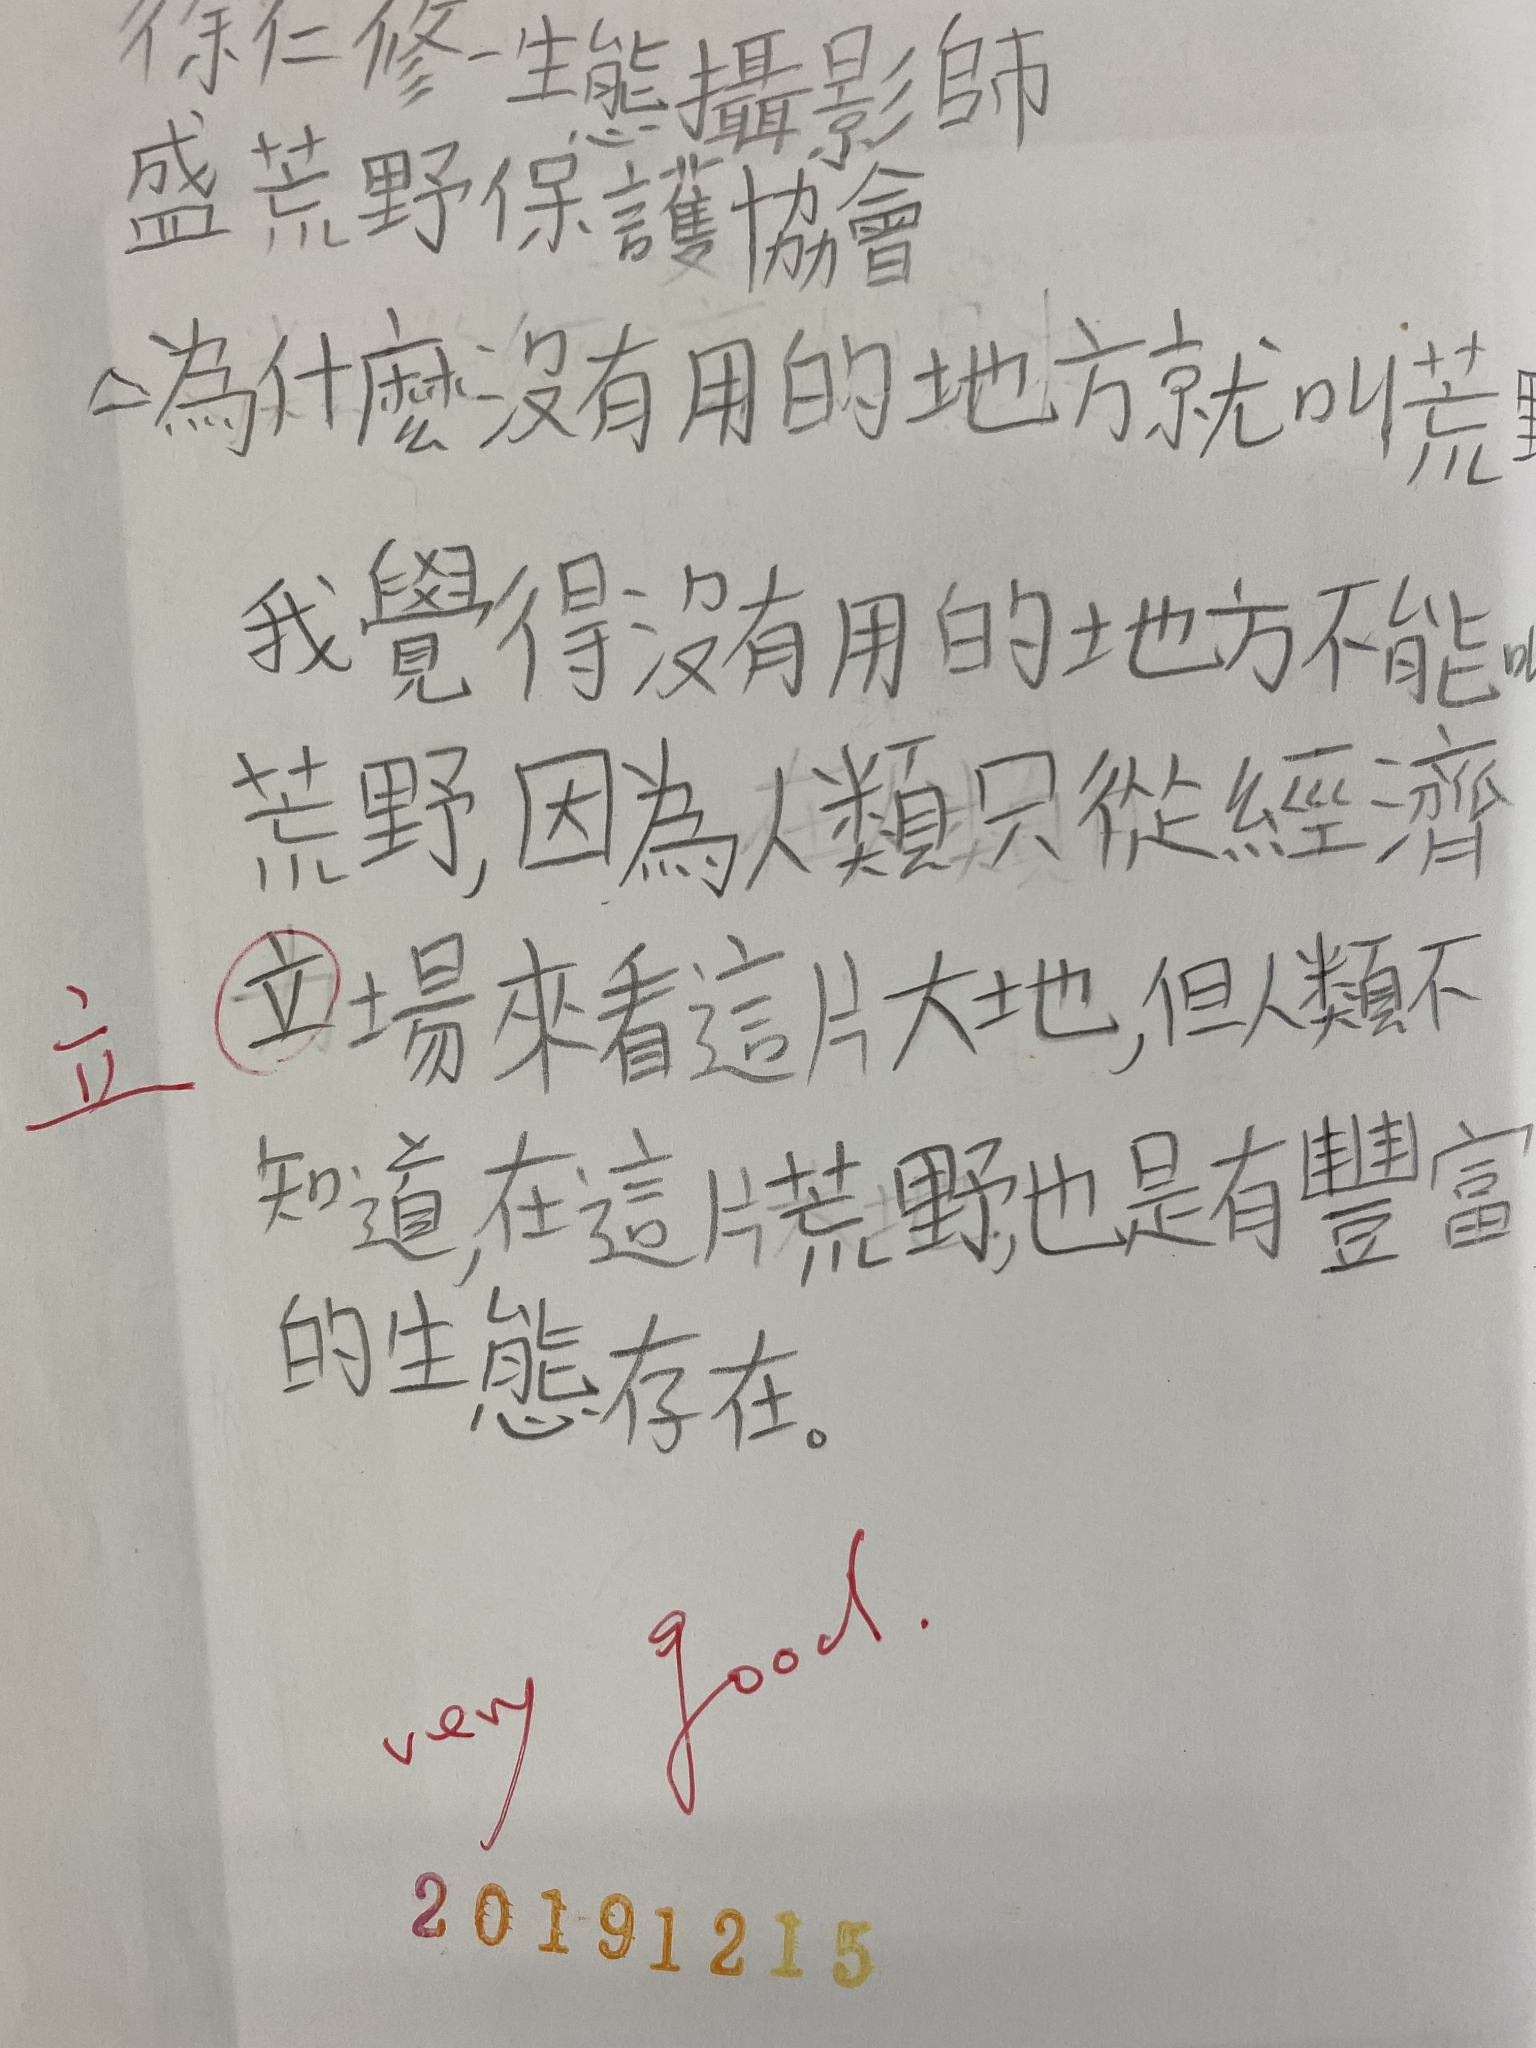 徐仁修-生態攝影師
盛荒野保護協會
△為什麼沒有用的地方就叫荒野
我覺得沒有用的地方不能叫
荒野,因為人類只從經濟
立場來看這片大地,但人類不
立
知道,在這片荒野,也是有豐富
的生態存在。
very good.
20191215